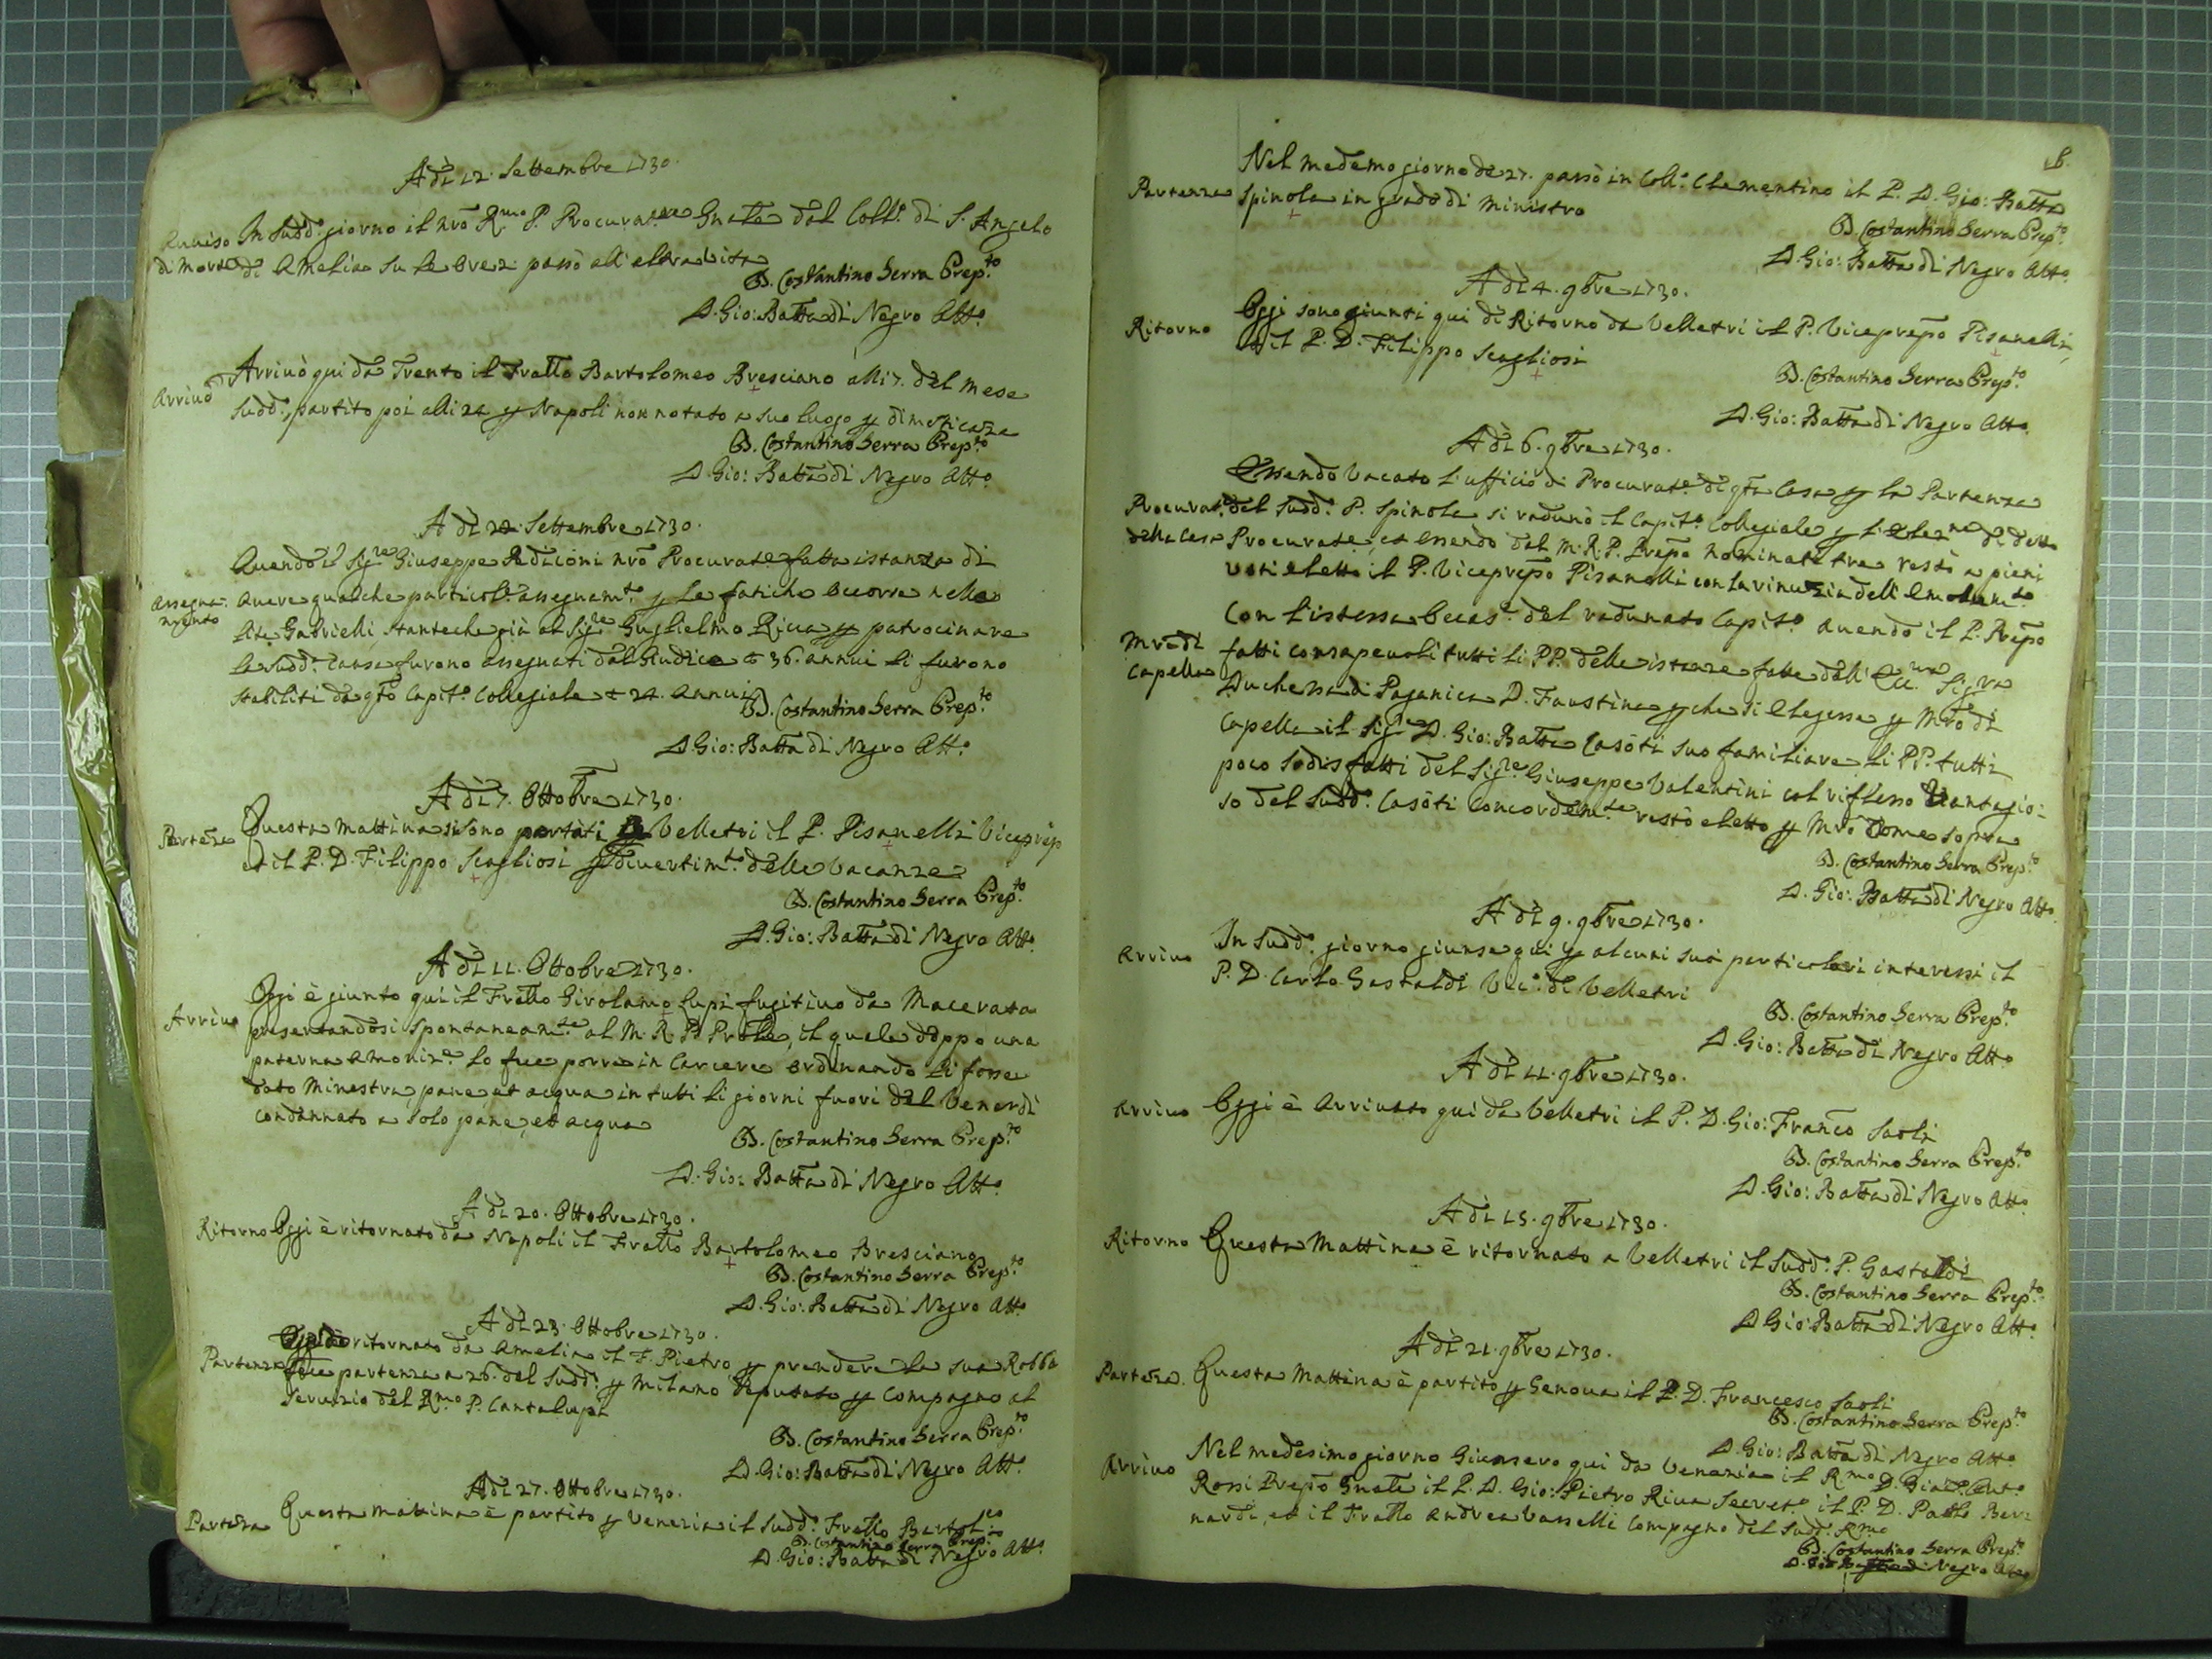 A dì 12. Settembre 1730.
Auuiso In Sudd.º giorno il nrõ R.mo P. Procurat.re Gnãle del Coll.º di S. Angelo
di morte di Amelia su le ore 2. passò all'altra vita
D. Costantino Serra Prep.to
D. Gio: Batta di Negro Att.º
Arrivo Arrivò qui da Trento il Fratello Bartolomeo Bresciano alli 7. del mese
Sudd.º, partito poi alli 24 p Napoli non notato a suo luogo p dimenticanza
D. Costantino Serra Prep.to
D. Gio: Batta di Negro Att.º
A dì 22. Settembre 1730.
Auendo il Sig.re Giuseppe Redicioni nrõ Procurat.e fatta istanza di
Assegna: Auere qualche particol.e assegnam.to p le fatiche occorre nella
mento lite Gabrielli, stanteche già al Sig.re Guglielmo Ricca p patrocinare
la Sudd.a Causa furono assegnati dal Giudice 36. annui li furono
stabiliti da q̃to Capit.º Collegiale 24. Annui
D. Costantino Serra Prep.to
D. Gio: Batta di Negro Att.º
A dì 7. Ottobre 1730.
Partẽza Questa mattina si sono portati a Velletri il P. Pisanelli Viceprep
et il P. D. Filippo Scagliosi p divertim.to delle Vacanze
D. Costantino Serra Prep.to
D. Gio: Batta di Negro Att.º
A dì 11. Ottobre 1730.
Arrivo Oggi è giunto qui il Frãtto Girolamo Lupi fugitivo da Macerata
presentandosi spontaneam.te al M. R. P. Prõle, il quale doppo una
paterna amoniz.e lo fece porre in Carcere ordinando li fosse
dato minestra, pane, et acqua in tutti li giorni fuori del Venerdì
condannato a solo pane, et acqua
D. Costantino Serra Prep.to
D. Gio: Batta di Negro Att.º
A dì 20. Ottobre 1730.
Ritorno Oggi è ritornato da Napoli il Frãtto Bartolomeo Bresciano
D. Costantino Serra Prep.to
D. Gio: Batta di Negro Att.º
A dì 23. Ottobre 1730.
ritornato da Amelia il F. Pietro p prendere la sua Robba
Partenza fece partenza a 26. del Sudd.º p Milano deputato p Compagno al
Servizio del R.mo P. Cantalupi
D. Costantino Serra Prep.to
D. Gio: Batta di Negro Att.º
A dì 27. Ottobre 1730.
Partẽza Questa mattina è partito p Venezia il Sudd.º Fratto Bartol.eo
D. Costantino Serra Prep.to
D. Gio: Batta di Negro Att.º
Nel medemo giorno de 27. passò in Coll.º Clementino il P. D. Gio: Batta
Partenza Spinola in grado di Ministro
D. Costantino Serra Prep.to
D. Gio: Batta di Negro Att.º
A dì 4. 9bre 1730.
Ritorno Oggi sono giunti qui di Ritorno da Velletri il P. Viceprep̃o Pisanelli,
et il P. D. Filippo Scagliosi
D. Costantino Serra Prep.to
D. Gio: Batta di Negro Att.º
A dì 6. 9bre 1730.
Essendo Vacato l'ufficio di Procurat.e di q̃ta Casa p la Partenza
Procurat.e del Sudd.º P. Spinola si radunò il Capit.º Collegiale p l'elez.ne di detto
della Casa Procurat.e, et essendo dal M. R. P. Prep̃o nominati tre restò a pieni
voti eletto il P. Viceprep̃o Pisanelli con la rinuzia dell'Emolum.to
Con l'istessa occas.e del radunato Capit.º auendo il P. Prep̃o
Mrõ di fatti consapevoli tutti li PP. delle istanze fatte dall'Ecc.ma Sig.ra
Capella Duchessa di Paganica D. Faustina p che si elegesse p Mrõ di
Capella il Sig.re D. Gio: Batta Casoti suo familiare, li PP. tutti
poco sodisfatti del Sig.re Giuseppe Valentini col riflesso Vantagio:
so del Sudd.º Casoti concordem.te restò eletto p Mrõ come sopra
D. Costantino Serra Prep.to
D. Gio: Batta di Negro Att.º
A dì 9. 9bre 1730.
Arrivo In Sudd.º giorno giunse qui p alcuni suoi particolari interessi il
P. D. Carlo Gastaldi Vic.º di Velletri
D. Costantino Serra Prep.to
D. Gio: Batta di Negro Att.º
A dì 11. 9bre 1730.
Arrivo Oggi è Arrivato qui da Velletri il P. D. Gio: Franco Saoli
D. Costantino Serra Prep.to
D. Gio: Batta di Negro Att.º
A dì 15. 9bre 1730.
Ritorno Questa Mattina è ritornato a Velletri il Sudd.º P. Gastaldi
D. Costantino Serra Prep.to
D. Gio: Batta di Negro Att.º
A dì 21. 9bre 1730.
Partẽza. Questa Mattina è partito p Genova il P. D. Francesco Saoli
D. Costantino Serra Prep.to
D. Gio: Batta di Negro Att.º
Arrivo Nel medesimo giorno Giunsero qui da Venezia il R.mo D.
Rossi Prep̃o Gnãle il P. D. Gio: Pietro Riva Secret.º il P. D. Paolo Ber:
nardi, et il Fratto Andrea Vasselli Compagno del Sudd.º R.mo
D. Costantino Serra Prep.to
D. Gio Batta di Negro Att.º